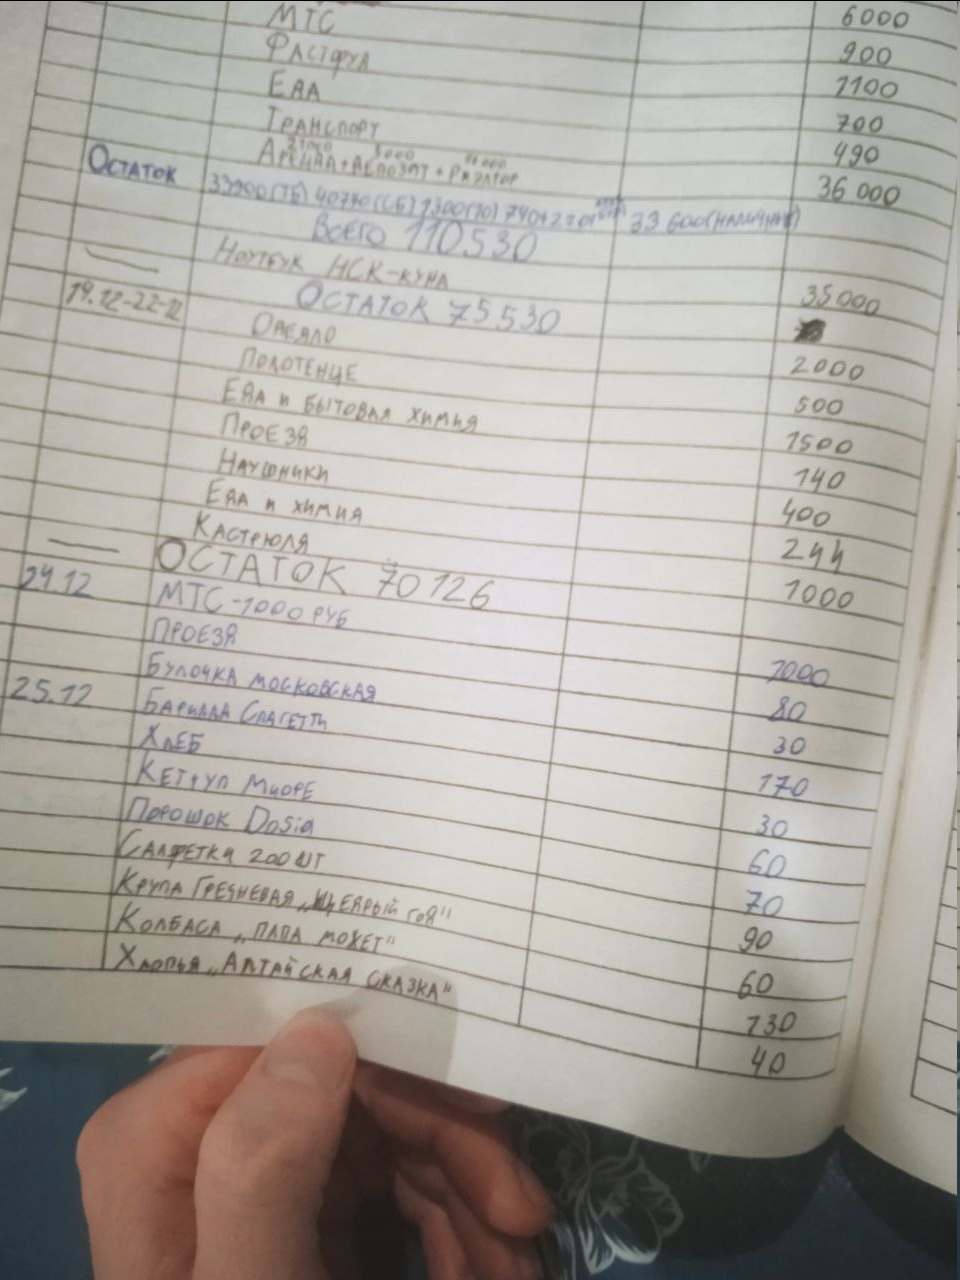 6000
МТС 900
Фастфуд 1100
Еда 700
Транспорт 490
21000 5000
Аренда+Депозит+Риэлтор 36 000
Остаток 33900(ТБ) 40740(СБ) 33 600(наличный)
Всего 110530
Ноутбук НСК-Куна 35000
Остаток 75530
19.12-22.12 Одеяло 2000
Полотенце 500
Еда и бытовая химия 1500
Проезд 140
Наушники 400
Еда и химия 244
Кастрюля 1000
Остаток 70126
24.12 МТС-1000 руб 1000
Проезд 80
Булочка московская 30
25.12 Барилла Спагетти 170
Хлеб 30
Кетчуп 60
Порошок Dosia 70
Салфетки 200 шт 90
Крупа Гречневая „Щедрый год" 60
Колбаса „Папа может" 130
Хлопья „Алтайская сказка" 40